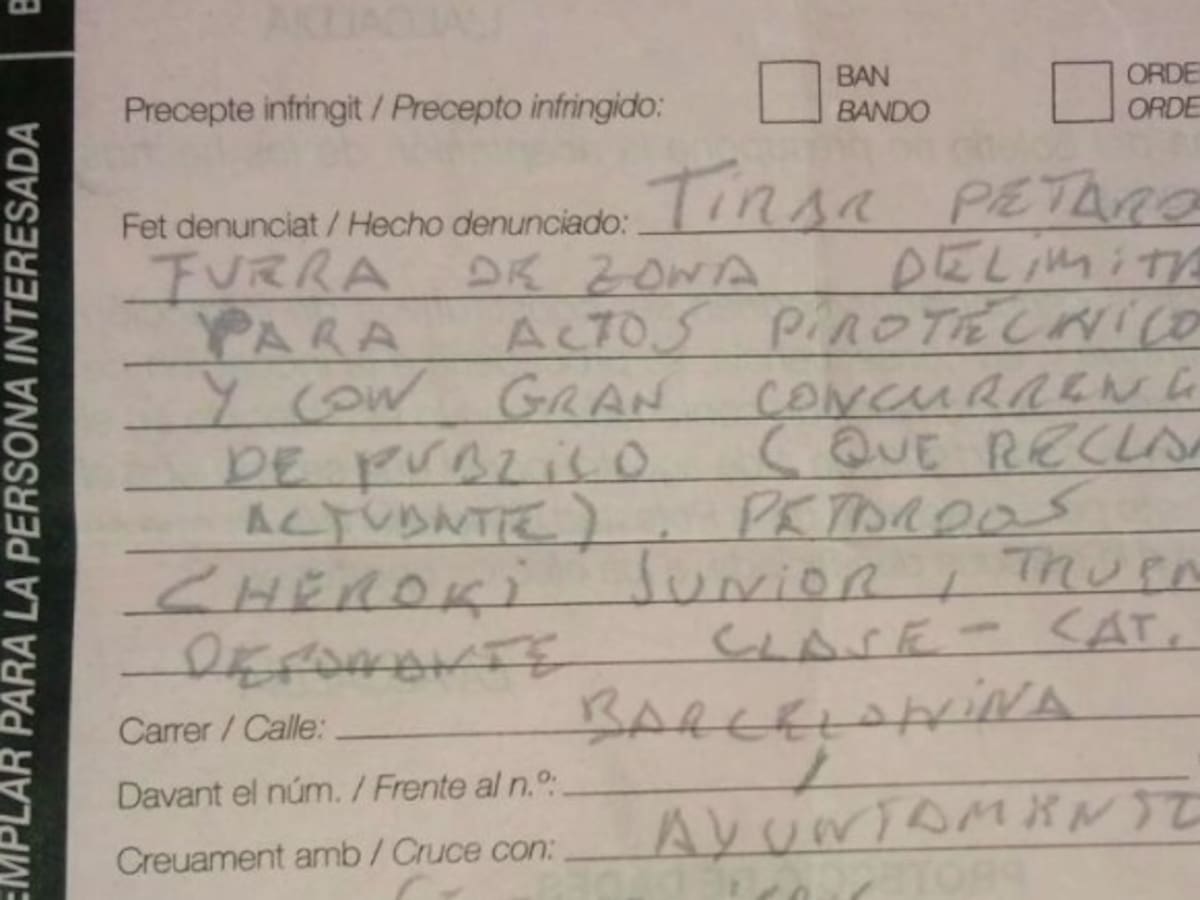 EMPLAR PARA LA PERSONA INTERESADA
Precepte infringit / Precepto infringido:
BAN
BANDO
ORDE
ORDE
Fet denunciat / Hecho denunciado: TIRAR PETARD
FUERA DE ZONA DELIMITA
PARA ACTOS PIROTÉCNICO
Y CON GRAN CONCURRENC
DE PUBLICO (QUE RECLAM
ACTUANTE). PETARDOS
CHEROKI JUNIOR, TRUEN
DETONANTE CLASE - CAT.
Carrer / Calle: BARCELONINA
Davant el núm. / Frente al n.º: /
Creuament amb / Cruce con: AYUNTAMIENTO